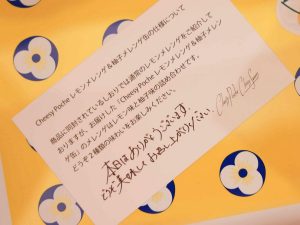 Cheesy Poche レモンメレンゲ＆柚子メレンゲ缶の仕様について
商品に同封されているしおりでは通常のレモンメレンゲをご紹介して
おりますが、お届けした「Cheesy Poche レモンメレンゲ＆柚子メレン
ゲ缶」のメレンゲはレモン味と柚子味の詰め合わせです。
どうぞ2種類の味わいをお楽しみください。
本日はありがとうございます。
どうぞ美味しくお召し上がりください。